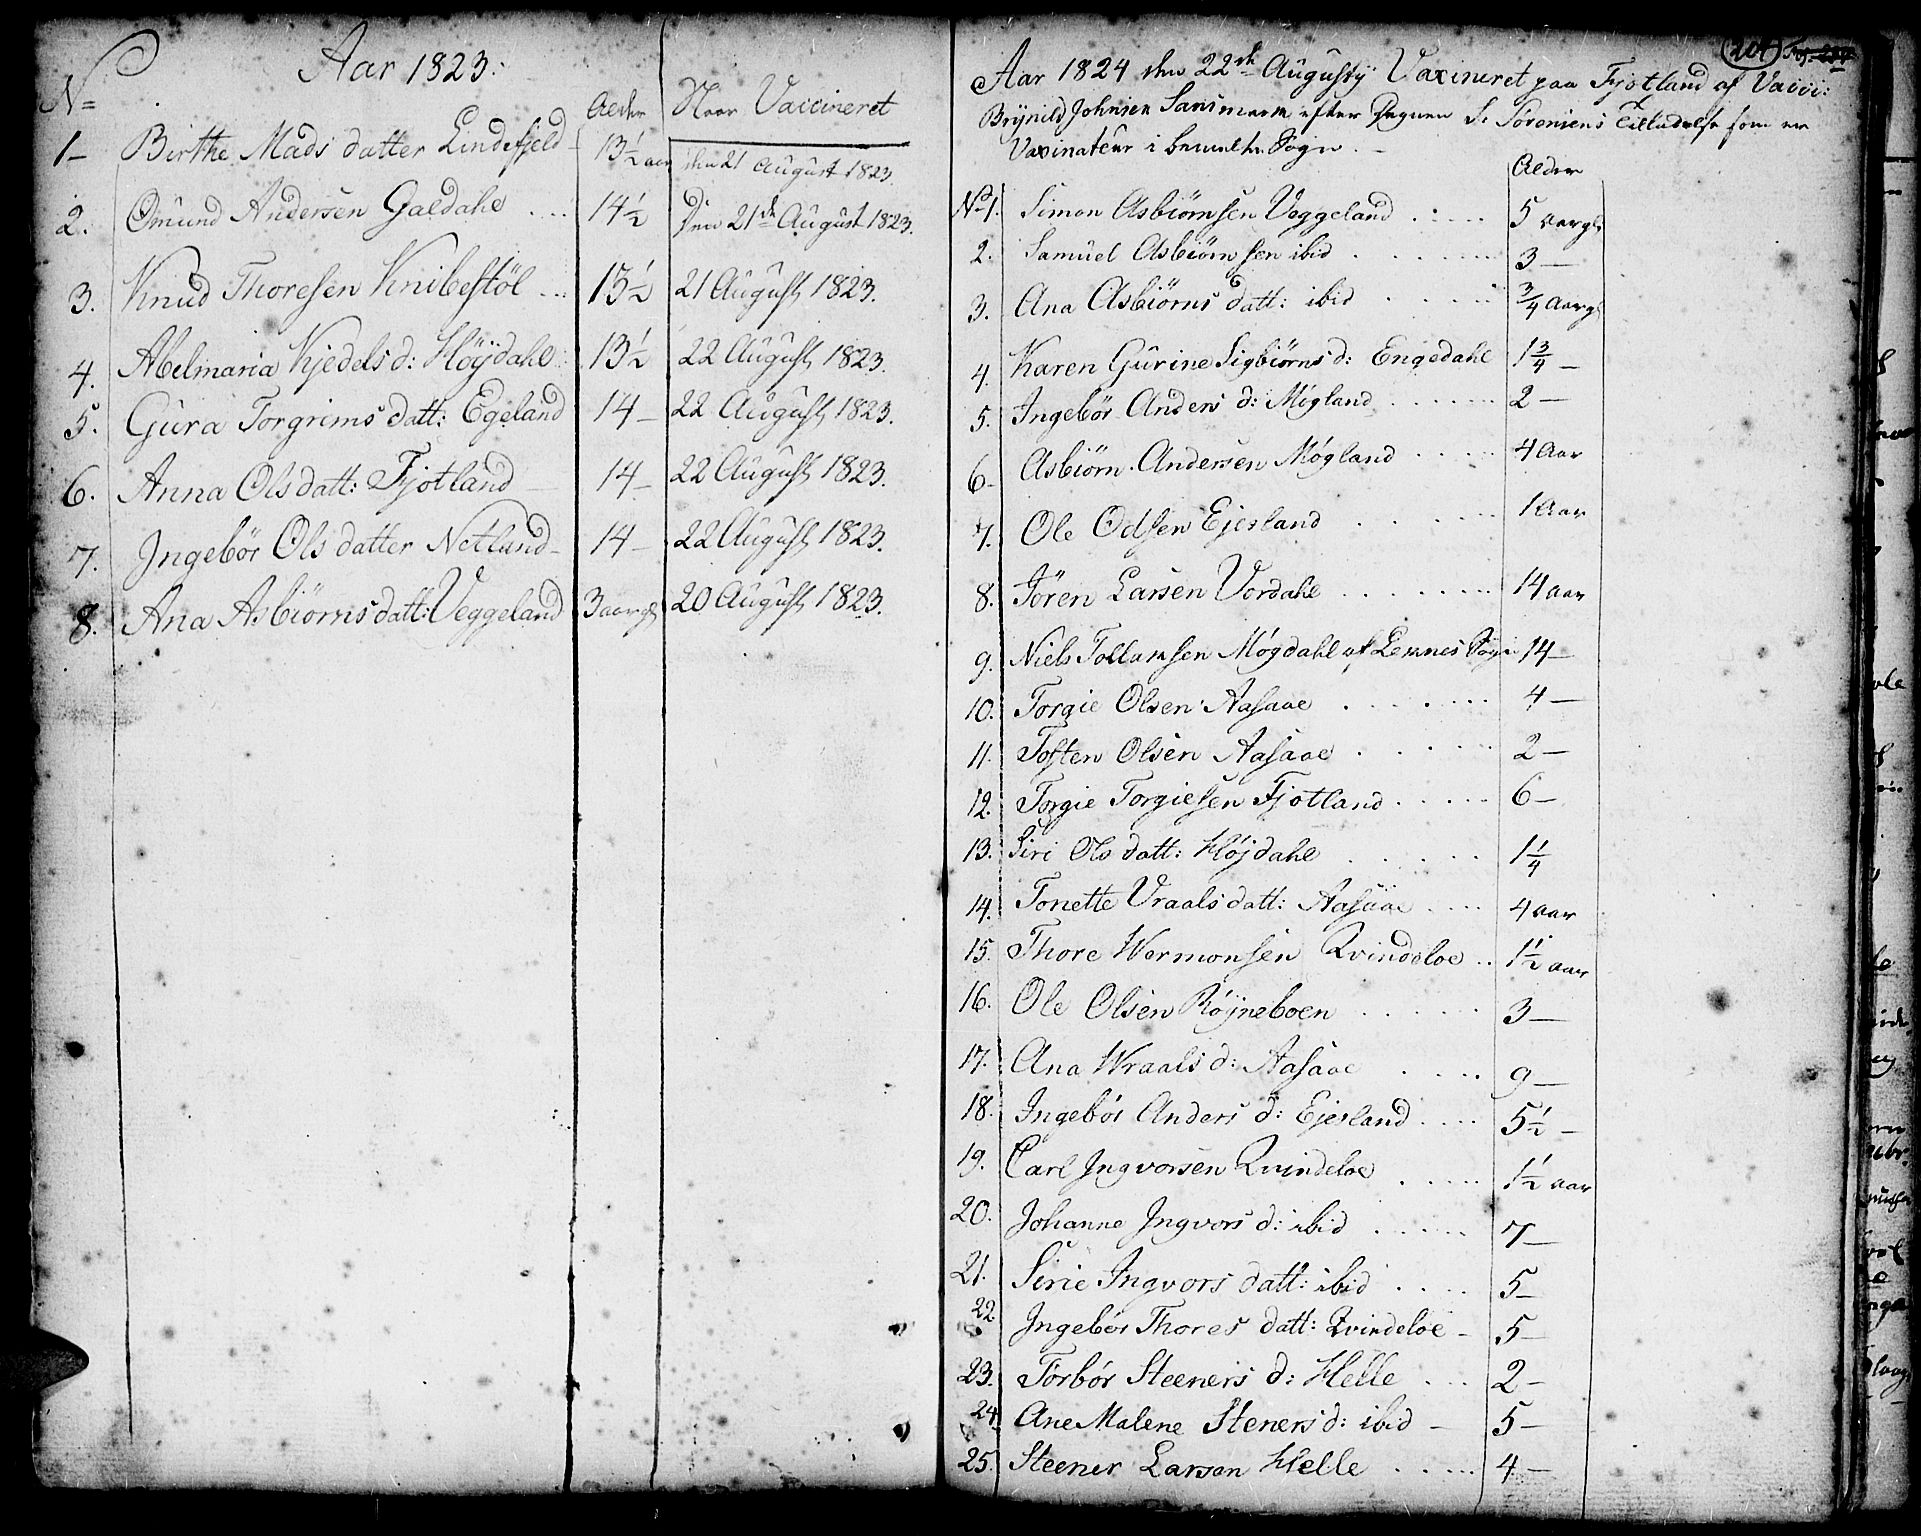 Aar 1823:
No
Alder
Naar Vaccineret
1- Birthe Mads datter Lindefjeld - 13½ aar den 21 August 1823.
2. Omund Andersen Galdahl .... 14½ Den 21de August 1823.
3. Knud Thoresen Knibestöl ... 13½ 21 August 1823.
4. Abelmaria Kjedels d: Höÿdahl 13½ 22 August 1823.
5. Gura Torgrims datt: Egeland 14- 22 August 1823.
6. Anna Ols datt: Fjotland - 14- 22 August 1823.
7. Ingebör Ols datter Netland- 14- 22 August 1823.
8. Ana Asbiörns datt: Veggeland 3 aargl 20 August 1823.
204
Aar 1824 den 22de Augusty Vaxineret paa Fjotland af Vacci:
Brÿnild Johnsen efter Degnen S. Sörensens Tilladelse som er
Vaxinateur i bemelte Sogn. -
Alder
No 1. Simon Asbiörnsen Veggeland ..... 5 aargl
2. Samuel Asbiörnsen ibid ...... 3-
3. Ana Asbiörns datt: ibid ..... ¾ aargl
4. Karen Gurine Sigbiörns d: Engedahl 1¾ -
5. Ingebör Anders d: Mögland ...... 2-
6- Asbiörn Andersen Mögland ..... 4 Aar
7. Ole Odsen Ejesland ...... 1 Aar
8. Sören Larsen Vordahl ....... 14 aar
9. Niels Tollamsen Mögdahl af Sogn 14-
10. Torgie Olsen Aasaae ...... 4-
11. Tosten Olsen Aasaae ..... 2-
12. Torgie Torgiesen Fjotland ..... 6-
13. Siri Ols datt: Höjdahl ..... 1¼
14. Tonette Vraals datt: Aasaae .... 4 aar
15. Thore Wermonsen Qvindeloe .. 1½ aar
16. Ole Olsen Röjneboen ..... 3-
17. Ana Wraals d: Aasaae .... 9-
18. Ingebör Anders d: Ejesland .... 5½ -
19. Carl Ingvorsen Qvindeloe ..... 1½ aar
20. Johanne Ingvors d: ibid ..... 7-
21. Sirie Ingvors datt: ibid .... 5-
22. Ingebör Thores datt: Qvindeloe - 5-
23. Torbör Steeners d: Helle ... 2-
24. Ane Malene Steners d: ibid - 5-
25. Steener Larsen Helle ..... 4-